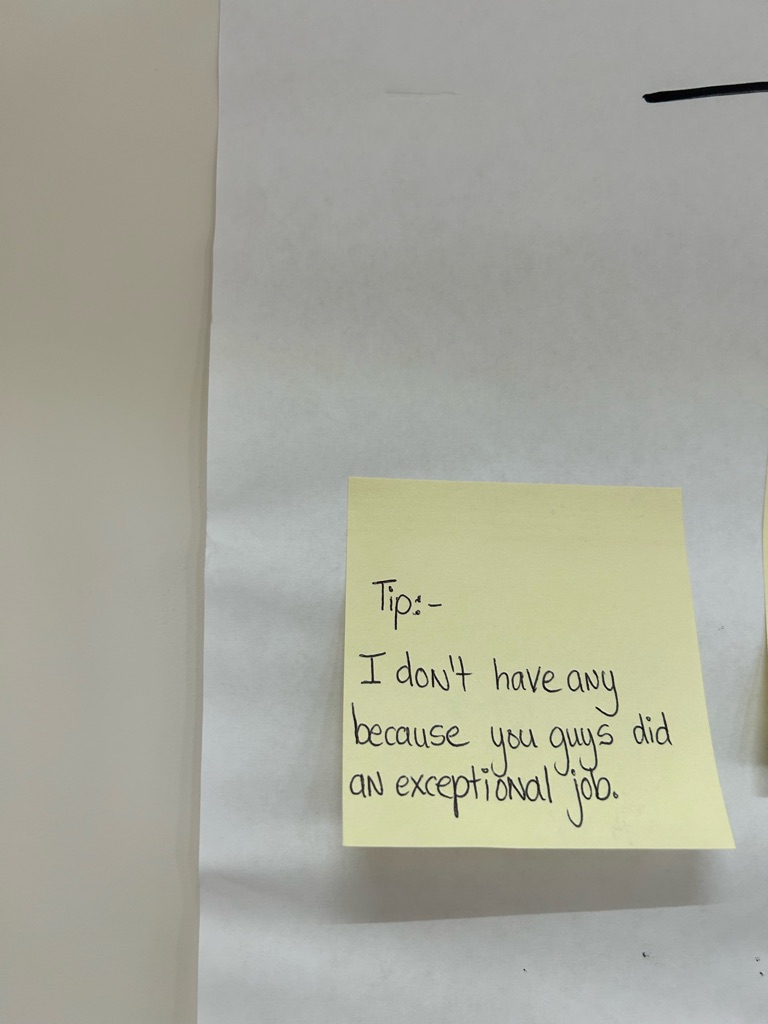 Tip:-
I don't have any
because you guys did
an exceptional job.